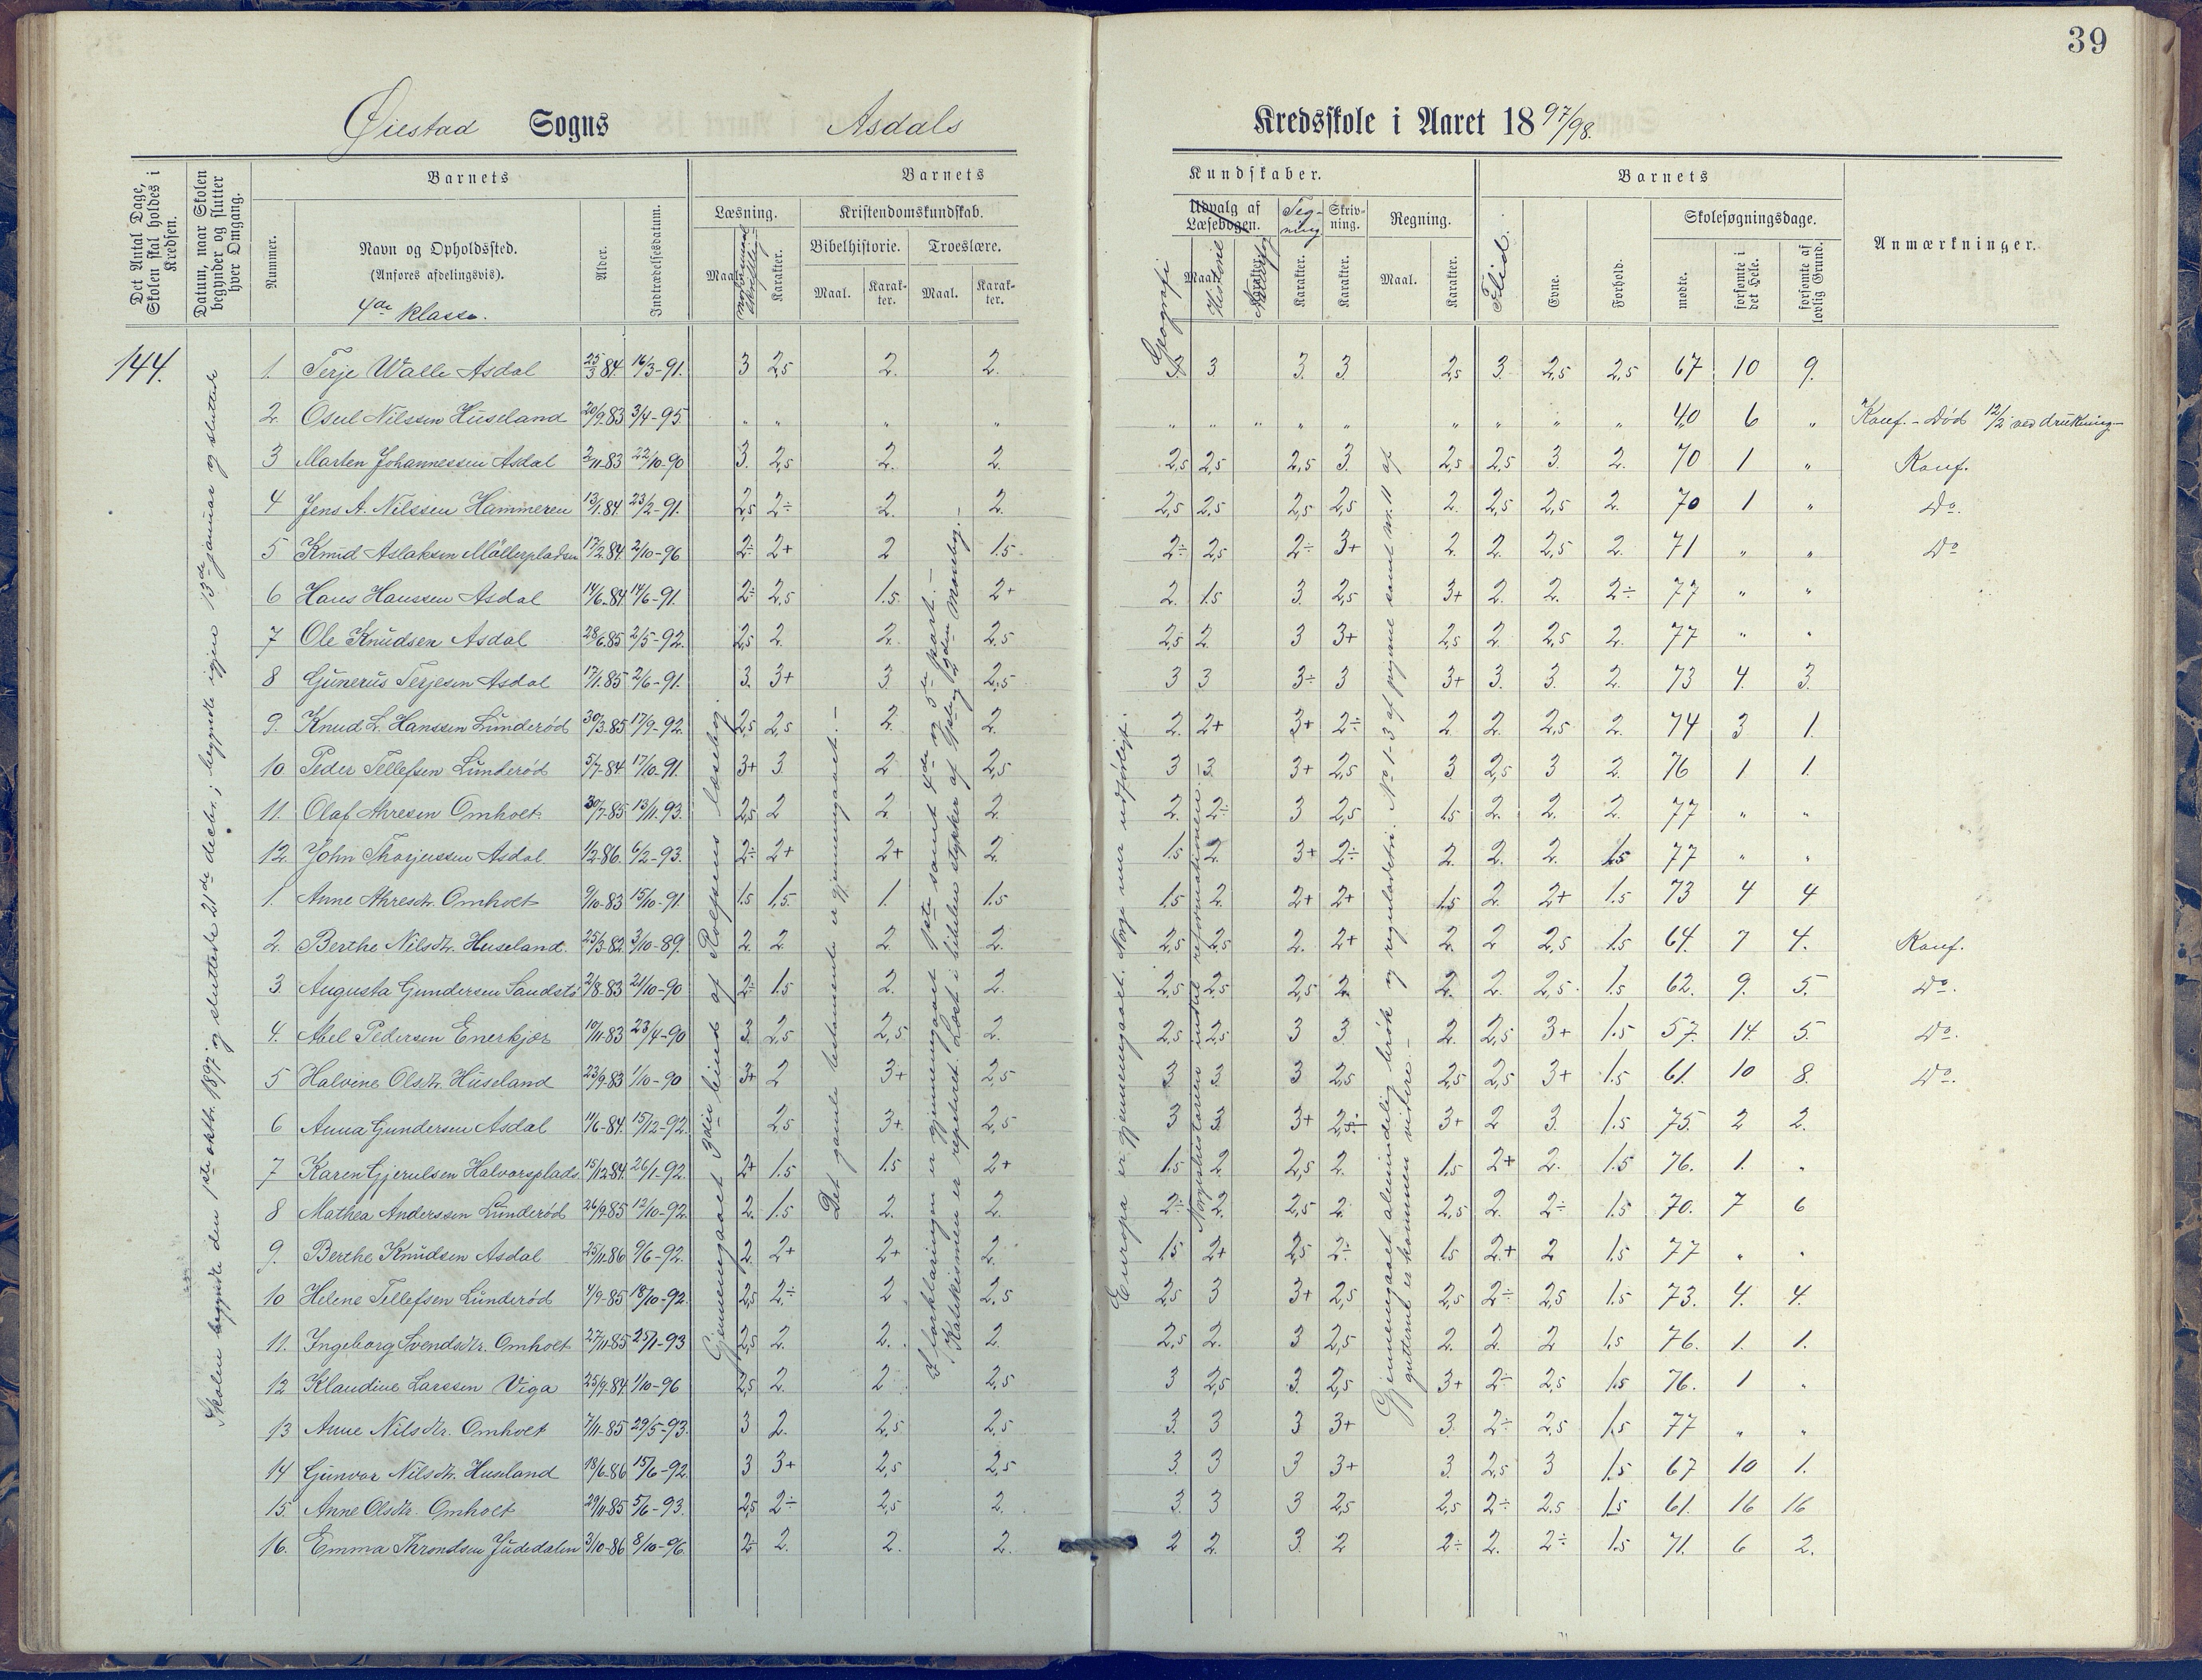 39
Øiestad Sogns Asdals Kredsskole i Aaret 1897/98.
Det Antal Dage, Skolen skal holdes i Kredsen.
Datum, naar Skolen begynder og slutter hver Omgang.
Barnets
Nummer.
Navn og Opholdssted.
(Anføres afdelingsvis).
4de klasse.
Alder.
Indtrædelsesdatum.
Barnets Kundskaber.
Læsning.
Maal.
Karakter.
Kristendomskundskab.
Bibelhistorie.
Maal.
Karakter.
Troeslære.
Maal.
Karakter.
Udvalg af Læsebogen.
Geografi
Maal.
Historie
Karakter.
Tegning
Karakter.
Skrivning.
Karakter.
Regning.
Maal.
Karakter.
Barnets
Flid.
Evne.
Forhold.
Skolesøgningsdage.
mødte.
forsømte i det Hele.
forsømte af lovlig Grund.
Anmærkninger.
144.
Skolen begyndte den 1ste oktbr. 1897 og sluttede 21de decbr.; begyndte igjen 13de januar og sluttede
Gjennemgaaet 3die bind af Rolfsens læsebog.
Det gamle testamente er gjennemgaaet.
I forklaringen er gjennemgaaet 1ste samt 4de og 5te part.
Katekismen er repeteret. Læst i bibelen stykker af 1ste og 2den mosebog.
Europa er gjennemgaaet. Norge mer udførligt.
Norgeshistorien indtil reformationen.
Gjennemgaaet almindelig brøk og reguladetri. No 1-3 af pigerne samt nr. 11 af
gutterne er kommen videre.
1. Terje Walle Asdal 25/3 84. 16/3-91. 3 2,5 2. 2. 3. 3 3. 3 2,5 3. 2,5 2,5 67 10 9.
2. Osul Nilssen Huseland 20/9 83 3/4-95. " " " " " " " " " " " " " 40 6 " Konf. - Død 12/2 ved drukning
3 Marten Johannessen Asdal 2/11-83 22/10-90 3. 2,5 2. 2. 2,5 2,5 2,5 3. 2,5 2,5 3. 2. 70 1 " Konf.
4 Jens A. Nilssen Hammeren 13/1.84. 23/2-91. 2,5 2÷ 2. 2. 2,5 2,5 2,5 2,5 2. 2,5 2,5 2. 70 1 " Do.
5 Knud Aslaksen Möllerpladsen 17/2.84. 2/10-96 2÷ 2+ 2 1.5 2÷ 2,5 2÷ 3+ 2. 2. 2,5 2. 71 " " Do
6 Hans Hanssen Asdal 14/6-84 14/6-91. 2÷ 2,5 1.5 2+ 2. 1.5 3. 2,5 3+ 2. 2. 2÷ 77 " "
7 Ole Knudsen Asdal 28/6.85 2/5-92. 2,5 2. 2. 2.5 2,5 2. 3 3+ 2,5 2. 2,5 2. 77 " "
8 Gunerus Terjesen Asdal 17/1.85 2/6-91. 3. 3+ 3. 2,5 3 3 3÷ 3 3+ 3. 3. 2. 73 4. 3.
9. Knud L. Hanssen Lunderød 30/3-85 17/9-92. 2,5 2,5 2. 2. 2. 2+ 3+ 2÷ 2. 2. 2,5 2. 74 3 1.
10 Peder Tellefsen Lunderød 5/7-84 17/10-91. 3+ 3. 2 2,5 3 3. 3+ 2,5 3 2,5 3 2. 76 1 1.
11. Olaf Ahresen Omholt 30/7-85 13/11.93. 2,5 2 2. 2. 2. 2÷ 3 2,5 1.5 2. 2. 2. 77 " "
12. John Thorjussen Asdal 1/2-86. 6/2-93. 2÷ 2+ 2+ 2. 1.5 2. 3+ 2÷ 2. 2. 2. 1.5 77 " "
1. Anne Ahresdtr. Omholt 9/10-83 15/10-91. 1.5 1,5. 1. 1.5 1.5 2. 2+ 2+ 1.5 2. 2+ 1.5 73 4 4
2. Berthe Nilsdtr. Huseland. 25/3-82. 3/10-89. 2. 2. 2. 2. 2,5 2,5 2. 2+ 2. 2 2,5 1.5 64. 7 4. Konf.
3. Augusta Gundersen Sandstø 2/8-83 21/10-90 2÷ 1.5 2. 2. 2,5 2,5 2,5 2. 2. 2. 2,5. 1.5 62. 9. 5. Do.
4. Abel Pedersen Enerkjær 10/11-83 23/4-90 3. 2,5 2,5. 2. 2,5 2,5 3 3. 2. 2,5 3+ 1.5 57. 14. 5. Do.
5 Halvine Olsdtr. Huseland 23/9-83 1/10-90 3+ 2 3+ 2,5 3 3. 3 2,5 2,5 2,5 3+ 1.5 61. 10 8. Do.
6 Anna Gundersen Asdal 11/6-84. 15/12-92. 2,5 3+ 2,5 3 3. 3+ 2,5 3+ 2 3. 1.5 75. 2 2.
7 Karen Gjerulsen Halvorsplads. 15/12.84. 26/1-92. 2+ 1.5 1.5 2+ 1.5 2 2,5 2. 1.5 2+ 2. 1.5 76. 1. "
8 Mathea Anderssen Lunderød 26/9-85 12/10-92. 2. 1.5 2. 2 2÷ 2. 2,5 2. 2,5 2. 2÷ 1.5 70. 7 6
9. Berthe Knudsen Asdal 25/11-86 9/6-92. 2. 2+ 2+ 2. 1.5 2+ 2,5 2÷ 1.5 2+ 2 1.5 77 " "
10 Helene Tellefsen Lunderød 4/9-85 18/10-92. 2,5 2÷ 2 2.5 2,5 3 3+ 2,5 2,5 2÷ 2,5 1.5 73. 4. 4.
11. Ingeborg Svendsdtr. Omholt 27/11-85 25/1-93 2,5 2. 2. 2. 2,5 2. 3 2,5 2. 2. 2 1.5 76. 1. 1.
12 Klaudine Larssen Viga 25/9-84 1/10-96 2,5 2. 2 2,5 3 2,5 3. 2,5 3+ 2÷ 2,5 1.5 76. 1 "
13 Anne Nilsdtr. Omholt 7/11-85 29/5-93. 3 2. 2,5 2,5 3. 3 3 3+ 3. 2÷ 2,5 1.5 77 " "
14 Gunvor Nilsdtr. Huseland 18/6-86 15/6-92. 3 3+ 2,5 2,5 3. 3 3 3+ 3. 2,5 3 1.5 67 10 1.
15. Anne Olsdtr. Omholt 29/11-85 5/6-93. 2,5 2÷ 2,5 2. 3. 3 3 2,5 2,5 2÷ 2.5 1.5 61. 16 16
16. Emma Throndsen Judedalen 3/10-86 8/10-96. 2÷ 2. 2. 2. 2 2. 3. 2 2÷ 2. 2÷ 1.5 71. 6 2.